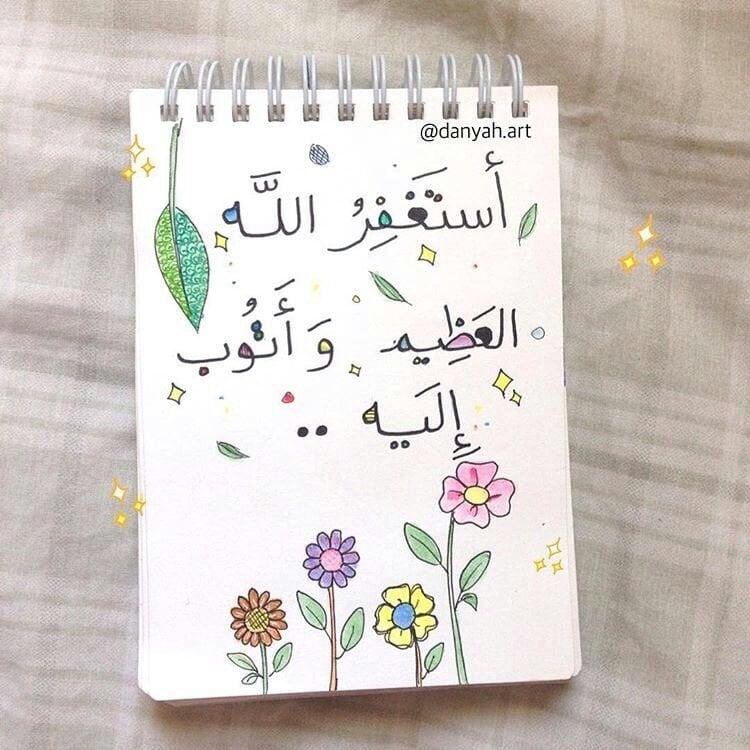 @danyah.art
أَستَغفِرُ اللَّه
العَظِيم وَأَتُوب
إِليَه ..